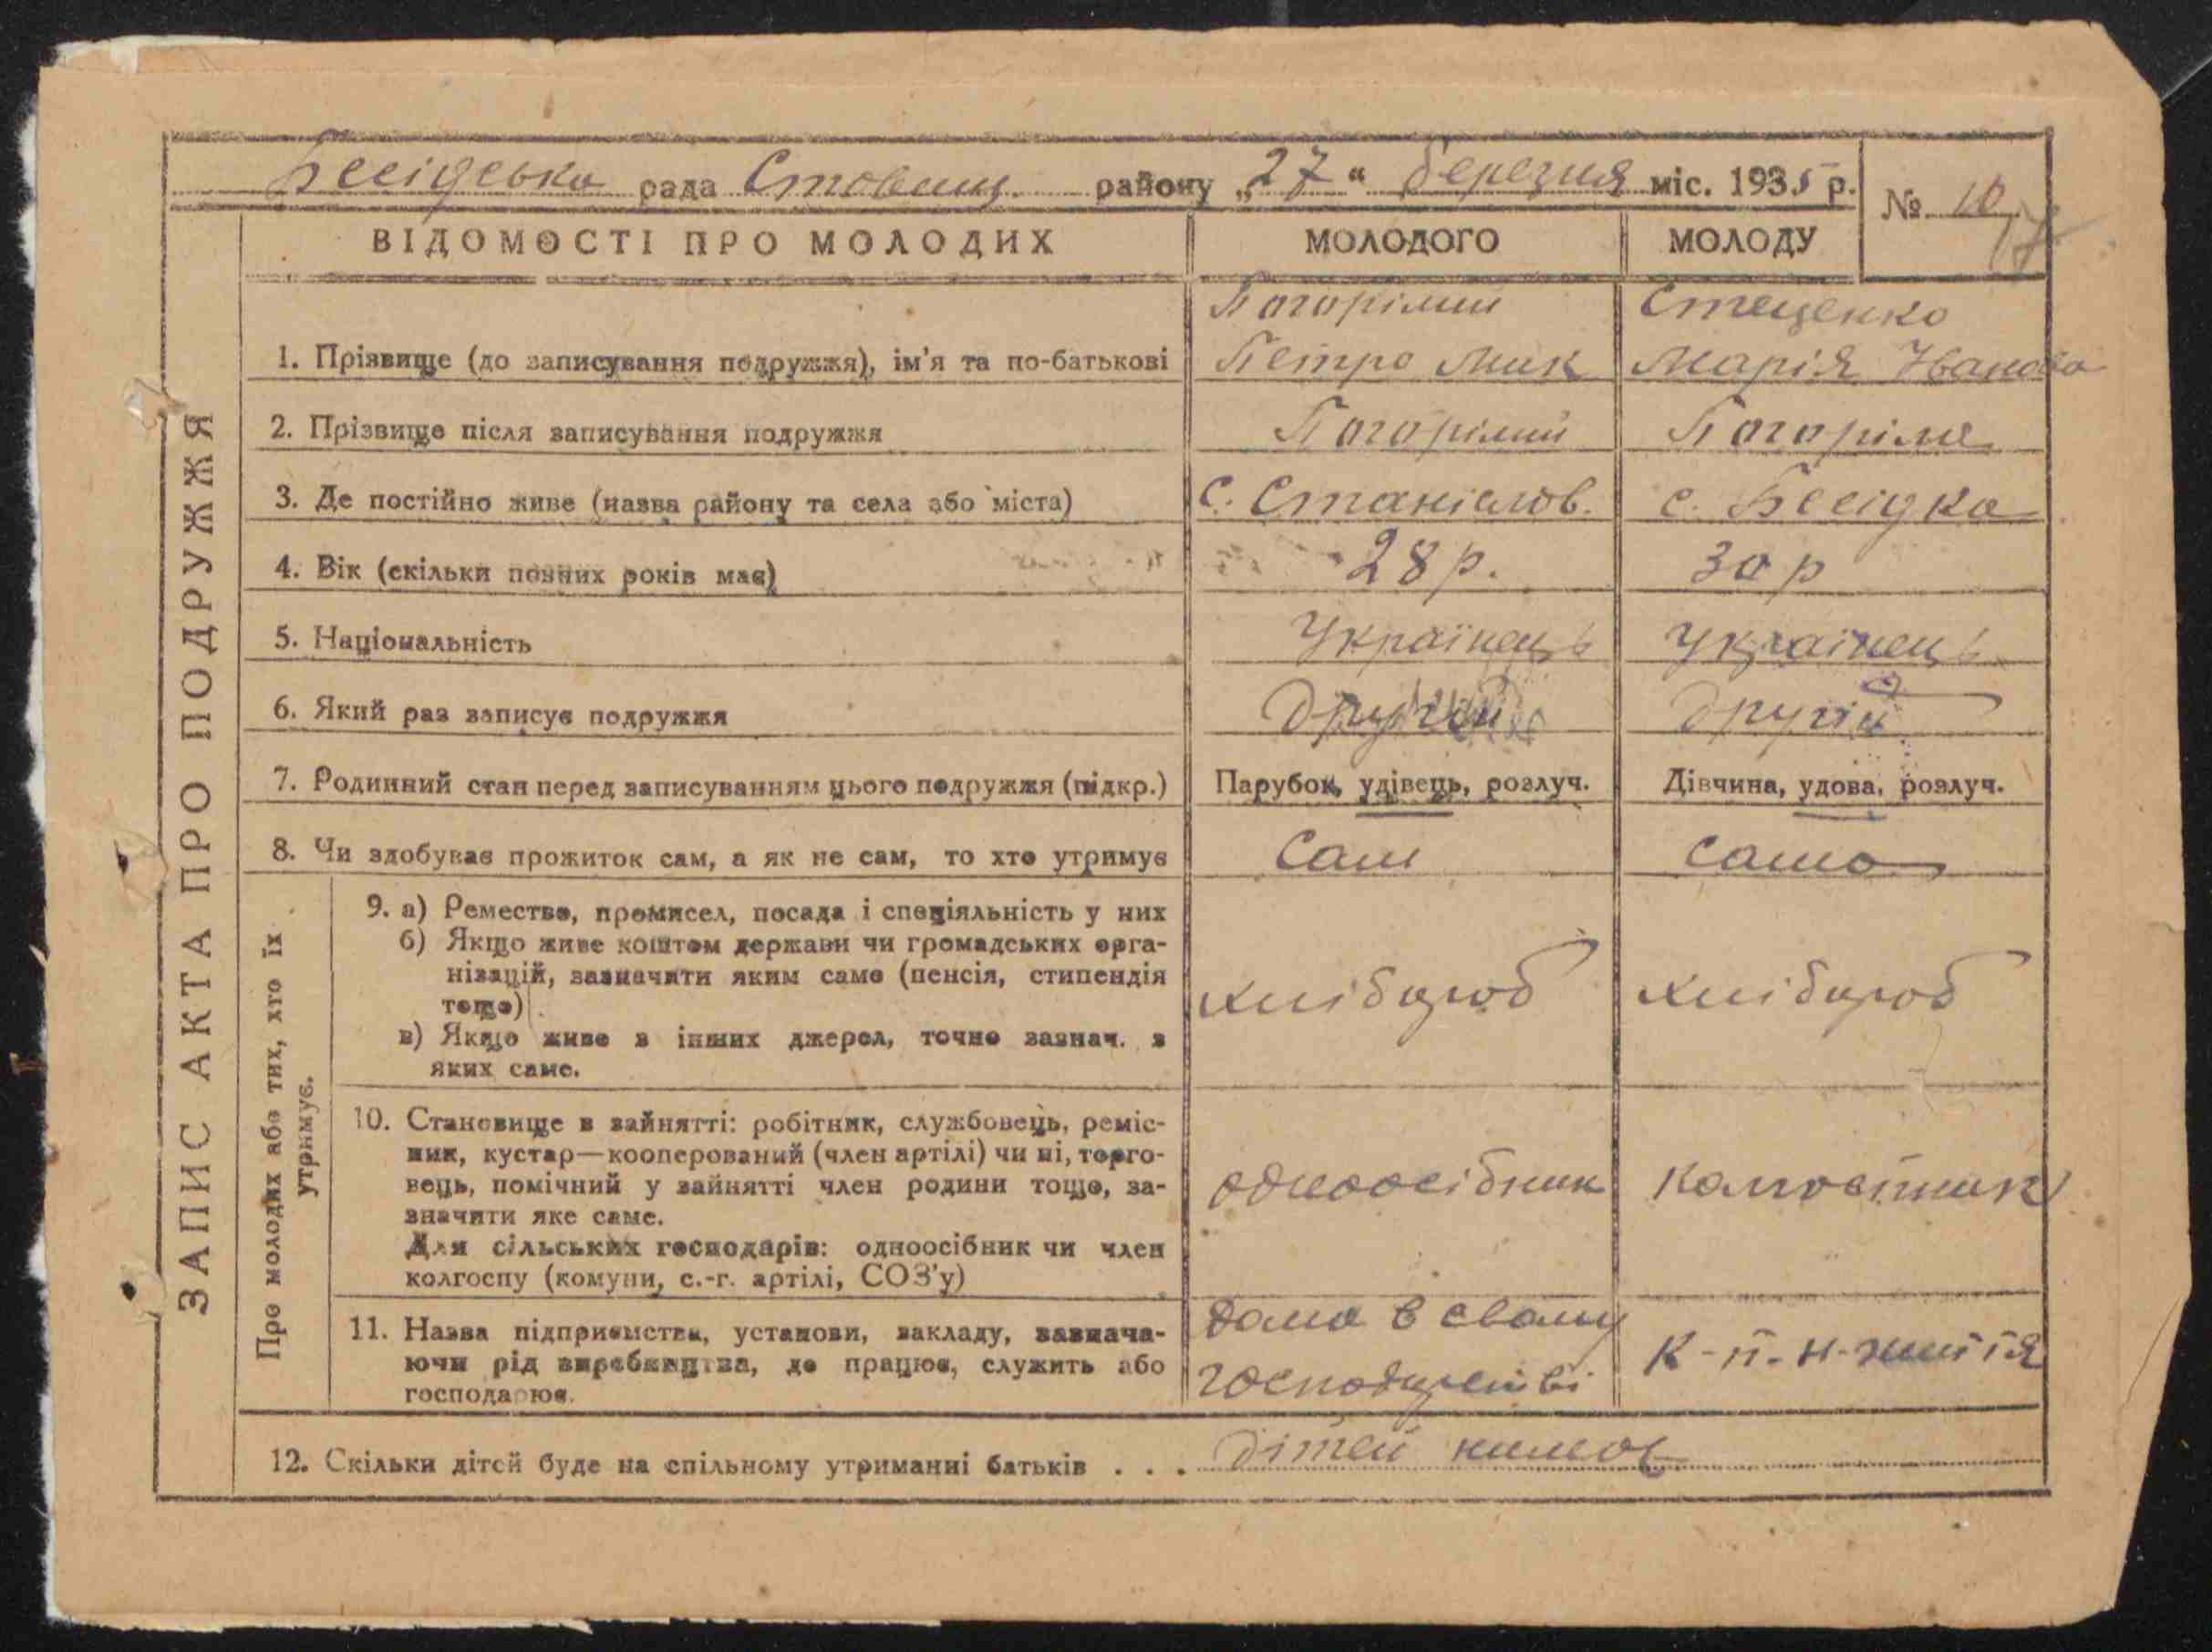 Бесідська рада Ставищ. району „27“ березня міс. 1935 р.
№ 10
ВІДОМОСТІ ПРО МОЛОДИХ МОЛОДОГО МОЛОДУ
ЗАПИС АКТА ПРО ПОДРУЖЖЯ
Погорілий Стеценко
1. Прізвище (до записування подружжя), ім'я та по-батькові Петро Мик Марія Іванова
2. Прізвище після записування подружжя Погорілий Погоріла
3. Де постійно живе (назва району та села або міста) с. Станіслов. с. Бесідка
4. Вік (скільки повних років має) 28 р. 30 р
5. Національність Українець Українець
6. Який раз записує подружжя Другий другий
7. Родинний стан перед записуванням цього подружжя (підкр.) Парубок, удівець, розлуч. Дівчина, удова, розлуч.
8. Чи здобуває прожиток сам, а як не сам, то хто утримує Сам сама
Про молодих або тих, хто їх
утримує.
9. а) Ремество, промисел, посада і спеціяльність у них
б) Якщо живе коштом держави чи громадських орга-
нізацій, зазначити яким саме (пенсія, стипендія
тощо)
хлібороб хлібороб
в) Якщо живе з інших джерел, точно зазнач. з
яких саме.
10. Становище в зайнятті: робітник, службовець, реміс-
ник, кустар—кооперований (член артілі) чи ні, торго-
вець, помічний у зайнятті член родини тощо, за-
значити яке саме.
одноосібник колгоспник
Для сільських господарів: одноосібник чи член
колгоспу (комуни, с.-г. артілі, СОЗ'у)
11. Назва підприємства, установи, закладу, зазнача-
ючи рід виробництва, де працює, служить або
господарює.
дома в свому
господарстві
к-п-н-життя
12. Скільки дітей буде на спільному утриманні батьків . . . дітей немає